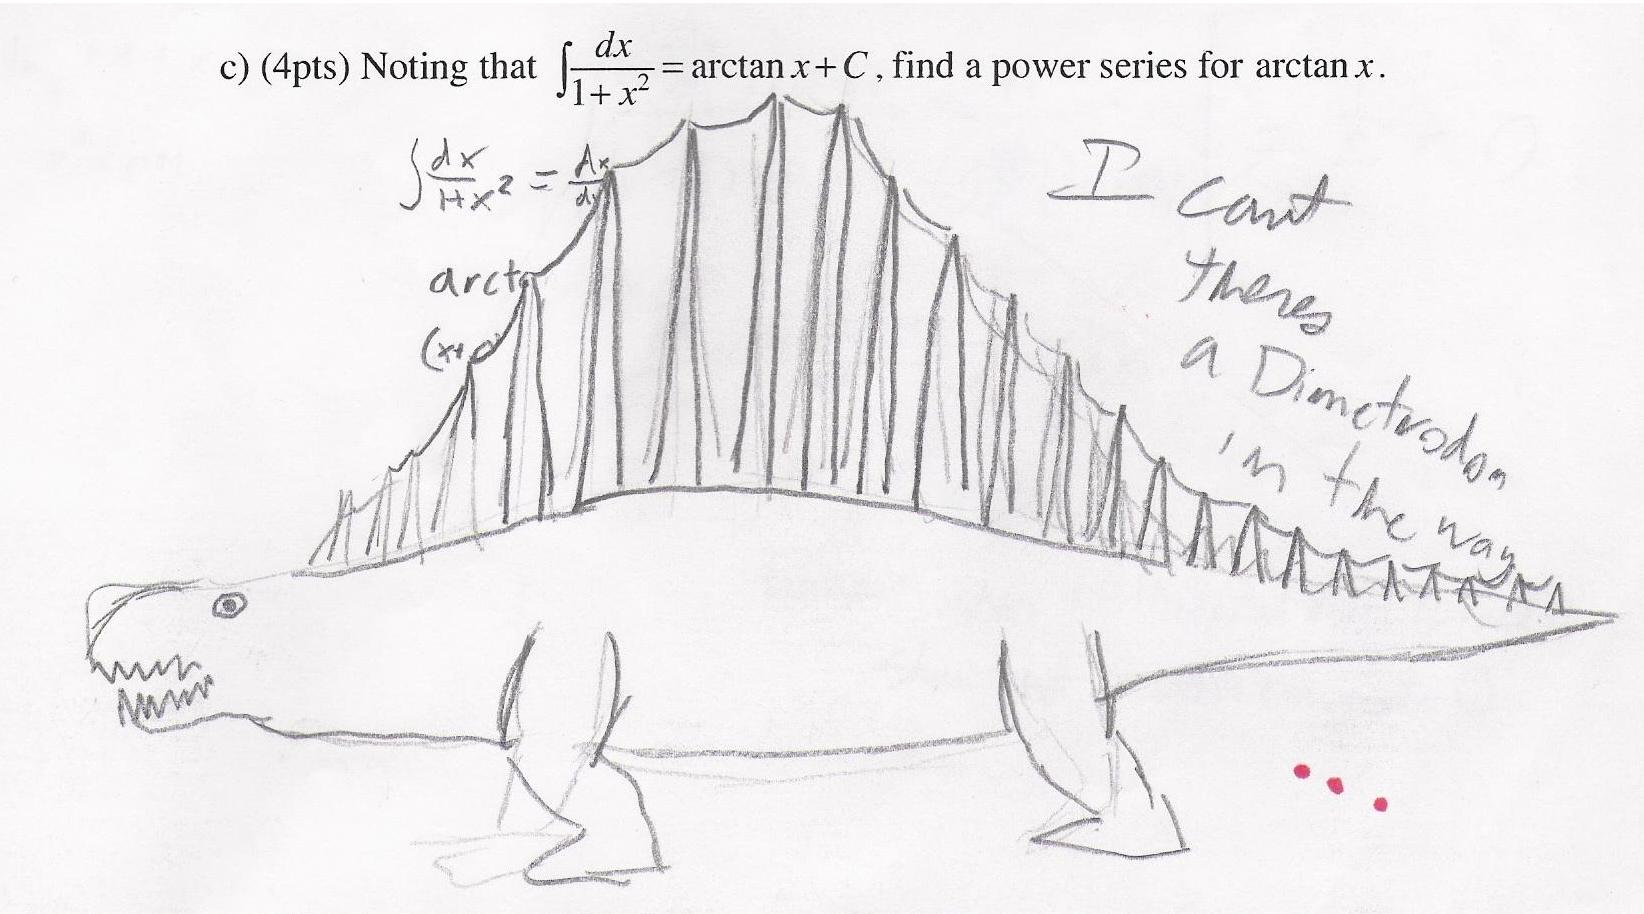 c) (4pts) Noting that ∫ dx/(1+x²) = arctan x + C, find a power series for arctan x.
∫ dx/(1+x²) =
arct
(x+
I
cant
theres
a Dimetrodon
in the way